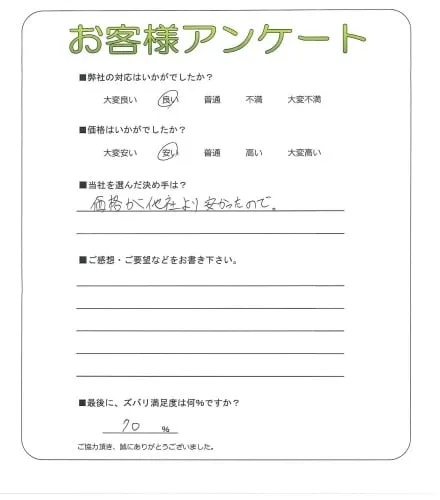 お客様アンケート
■弊社の対応はいかがでしたか？
大変良い 良い 普通 不満 大変不満
■価格はいかがでしたか？
大変安い 安い 普通 高い 大変高い
■当社を選んだ決め手は？
価格が他社より安かったので。
■ご感想・ご要望などをお書き下さい。
■最後に、ズバリ満足度は何%ですか？
70 %
ご協力頂き、誠にありがとうございました。